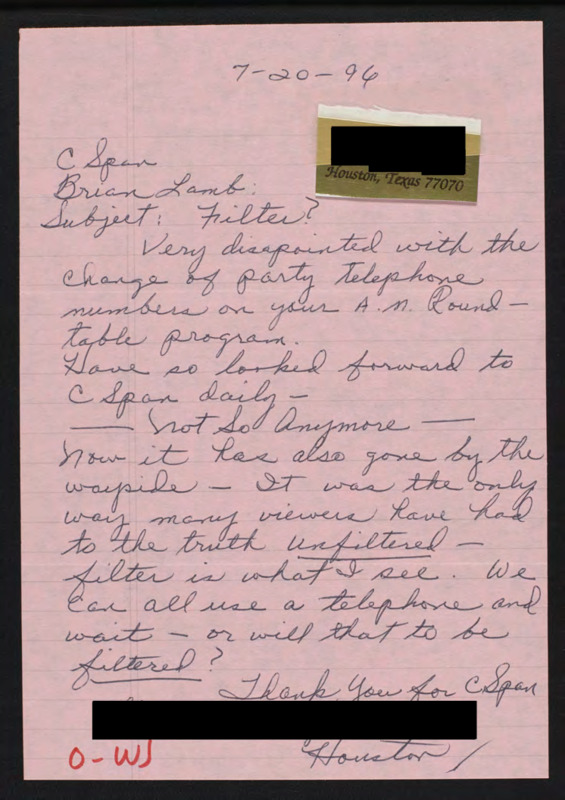 7-20-96
Houston, Texas 77070
C Span
Brian Lamb:
Subject: Filter?
Very disapointed with the
change of party telephone
numbers on your A.M. Round-
table program.
Have so looked forward to
C Span daily -
— Not So Anymore —
Now it has also gone by the
wayside - It was the only
way many viewers have had
to the truth unfiltered -
filter is what I see. We
can all use a telephone and
wait - or will that to be
filtered?
Thank You for C Span
Houston
O-WJ